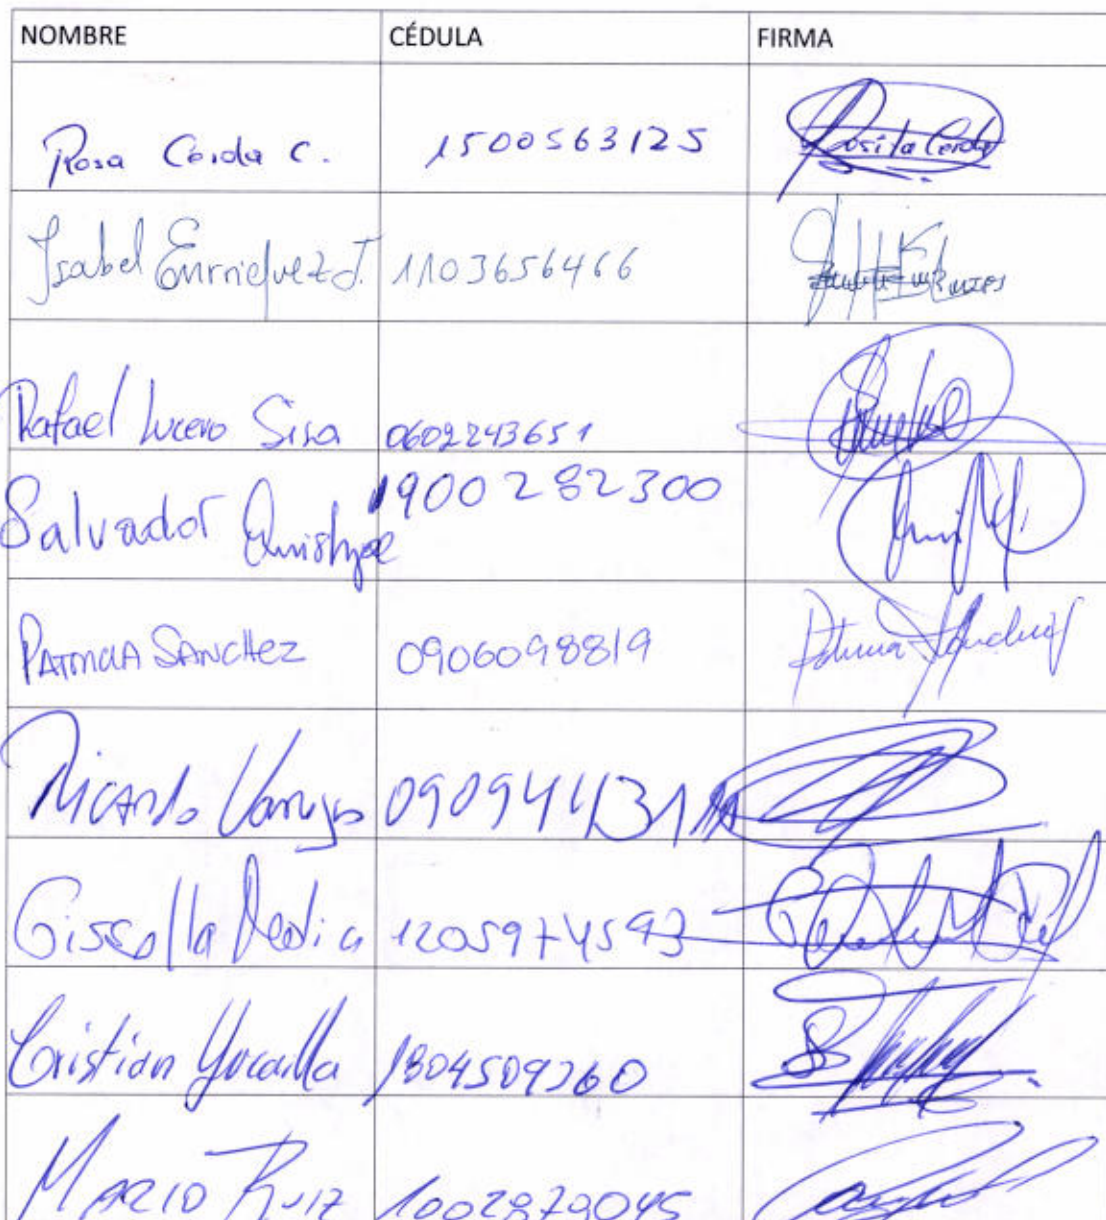 NOMBRE CÉDULA FIRMA
Rosa Cerda C. 1500563125 Rosita Cerda
Isabel Enrriquez J. 1103656466
Rafael Lucero Sisa 0602243651
Salvador Quishpe 1900282300
PATRICIA SANCHEZ 0906098819 Patricia Sanchez
Ricardo Vanegas
Gissella 1205974593
Cristian Yucailla 1804509360
MARIO RUIZ 1002879045